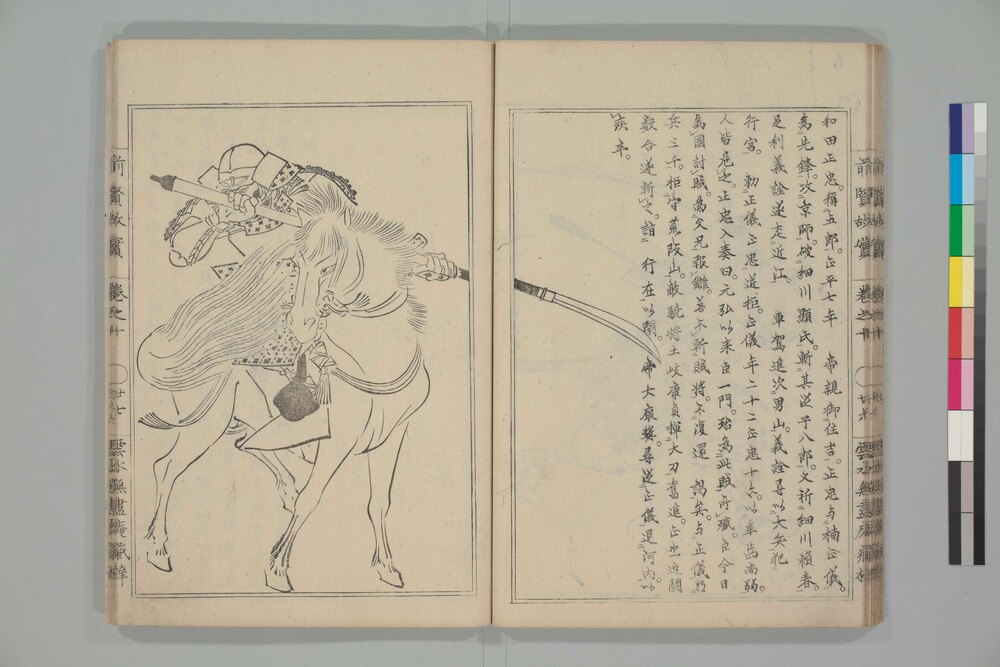 和田正忠。稱五郎。正平七年　帝親御住吉。正忠与楠正儀。
為先鋒。攻京師。破細川顯氏。斬其從子八郎。又斬細川頼春。
足利義詮遂走近江。　車駕進次男山。義詮尋以大兵犯
行宮。　勅正儀正忠逆拒。正儀年二十二正忠十六。以年齒尚弱。
人皆危之。正忠入奏曰。元弘以来臣一門。殆為此賊所殲。臣今日
為國討賊。為父兄報讎。若不斬賊將。不復還　謁矣。与正儀以
兵三千。拒守荒阪山。敵驍將土岐康貞揮大刀奮進。正忠迎鬪
數合遂斬之。詣　行在以聞。帝大褒奬。尋從正儀退河内。以
疾卒。
前賢故實　卷之十　雲水無盡庵藏梓
前賢故實　卷之十　廿七　雲水無盡庵藏梓